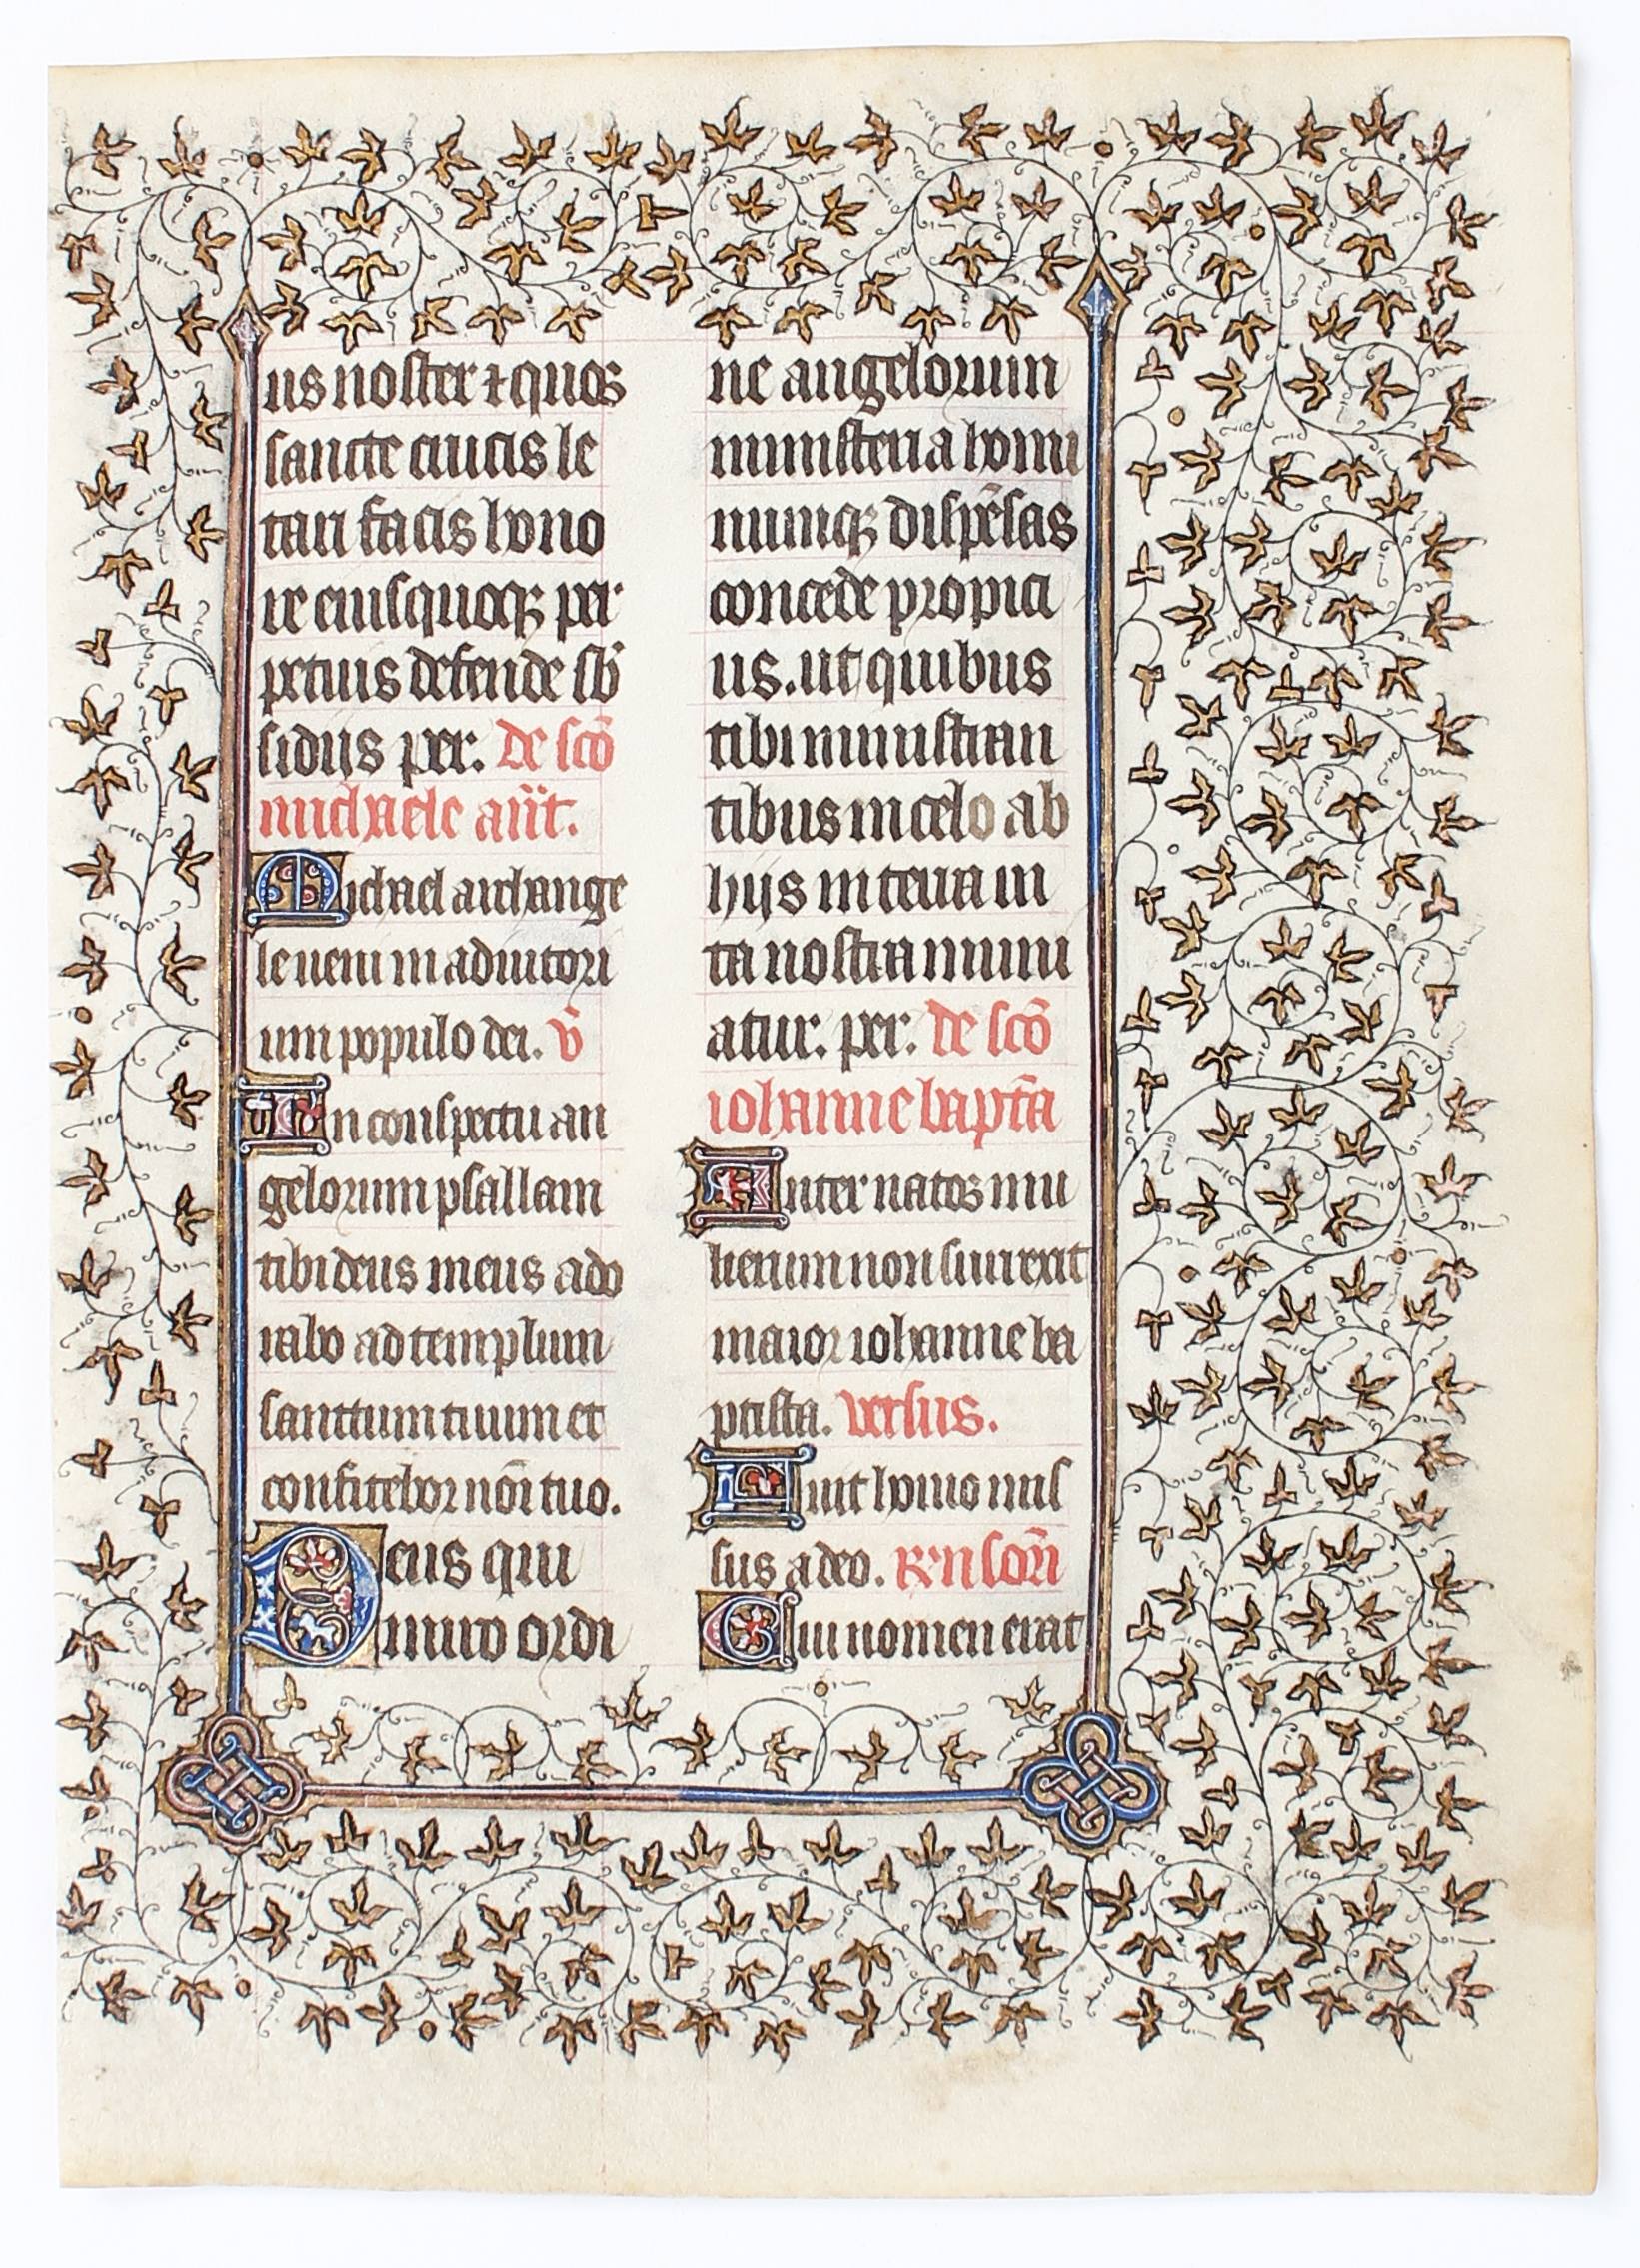 us noster ⁊ quos
sancte crucis le
tari facis hono
re eius quoqꝫ per
petuis defende sb̄
sidijs per. de scō
michaele an̄t.
Michael archange
le ueni in adiutori
um populo dei. v̄
In conspectu an
gelorum psallam
tibi deus meus ado
rabo ad templum
sanctum tuum et
confitebor nōi tuo.
Deus qui
miro ordi
ne angelorum
ministeria homi
numqꝫ dispēsas
concede propici
us. ut quibus
tibi ministran
tibus in celo ab
hijs in terra ui
ta nostra muni
atur. per. de scō
iohanne bapt̄a
Inter natos mu
lierum non surrexit
maior iohanne ba
ptista. versus.
Fuit homo mis
sus a deo.
Cui nomen erat